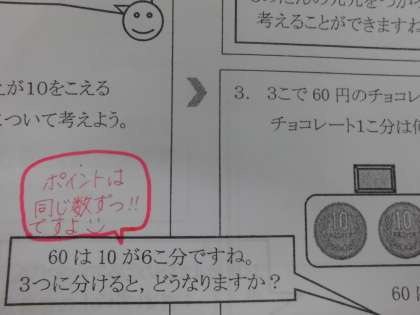 考えることができますね
えが10をこえる
について考えよう。
3. 3こで60円のチョコレ
チョコレート1こ分は
ポイントは
同じ数ずつ!!
ですよ
60は10が6こ分ですね。
3つに分けると，どうなりますか？
10
10
60